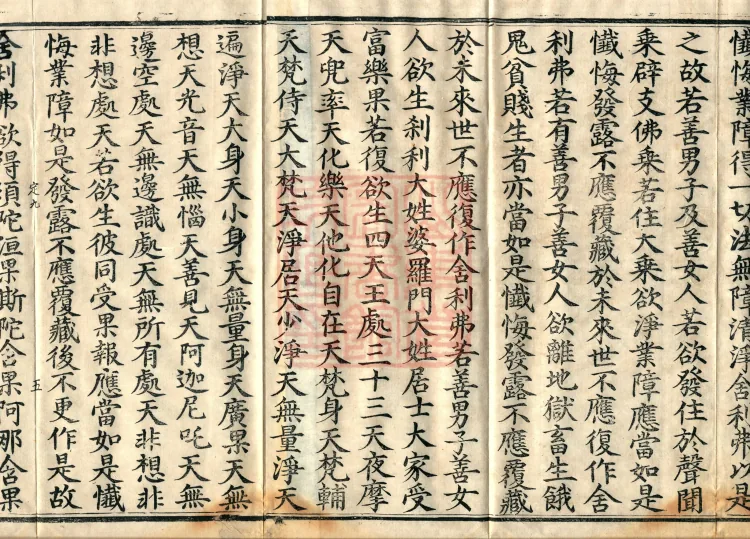 懺悔業障得一切法無障清淨舍利弗以是
之故若善男子及善女人若欲發住於聲聞
乘辟支佛乘若住大乘欲淨業障應當如是
懺悔發露不應覆藏於未來世不應復作舍
利弗若有善男子善女人欲離地獄畜生餓
鬼貧賤生者亦當如是懺悔發露不應覆藏
於未來世不應復作舍利弗若善男子善女
人欲生刹利大姓婆羅門大姓居士大家受
富樂果若復欲生四天王處三十三天夜摩
天兜率天化樂天他化自在天梵身天梵輔
天梵侍天大梵天淨居天少淨天無量淨天
遍淨天大身天小身天無量身天廣果天無
想天光音天無惱天善見天阿迦尼吒天無
邊空處天無邊識處天無所有處天非想非
非想處天若欲生彼同受果報應當如是懺
悔業障如是發露不應覆藏後不更作是故
定九 五
舍利弗欲得須陀洹果斯陀含果阿那含果